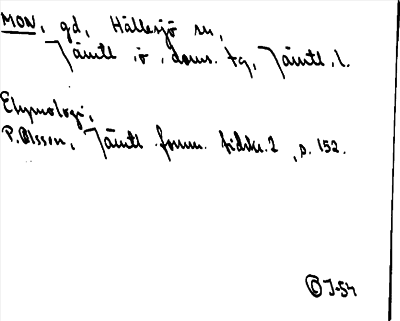 MON, gd, Hällesjö sn,
Jämtl. ö. doms. tg, Jämtl. l.
Etymologi,
P. Olsson, Jämtl. fornm. tidskr. 2, s. 152.
© J-54